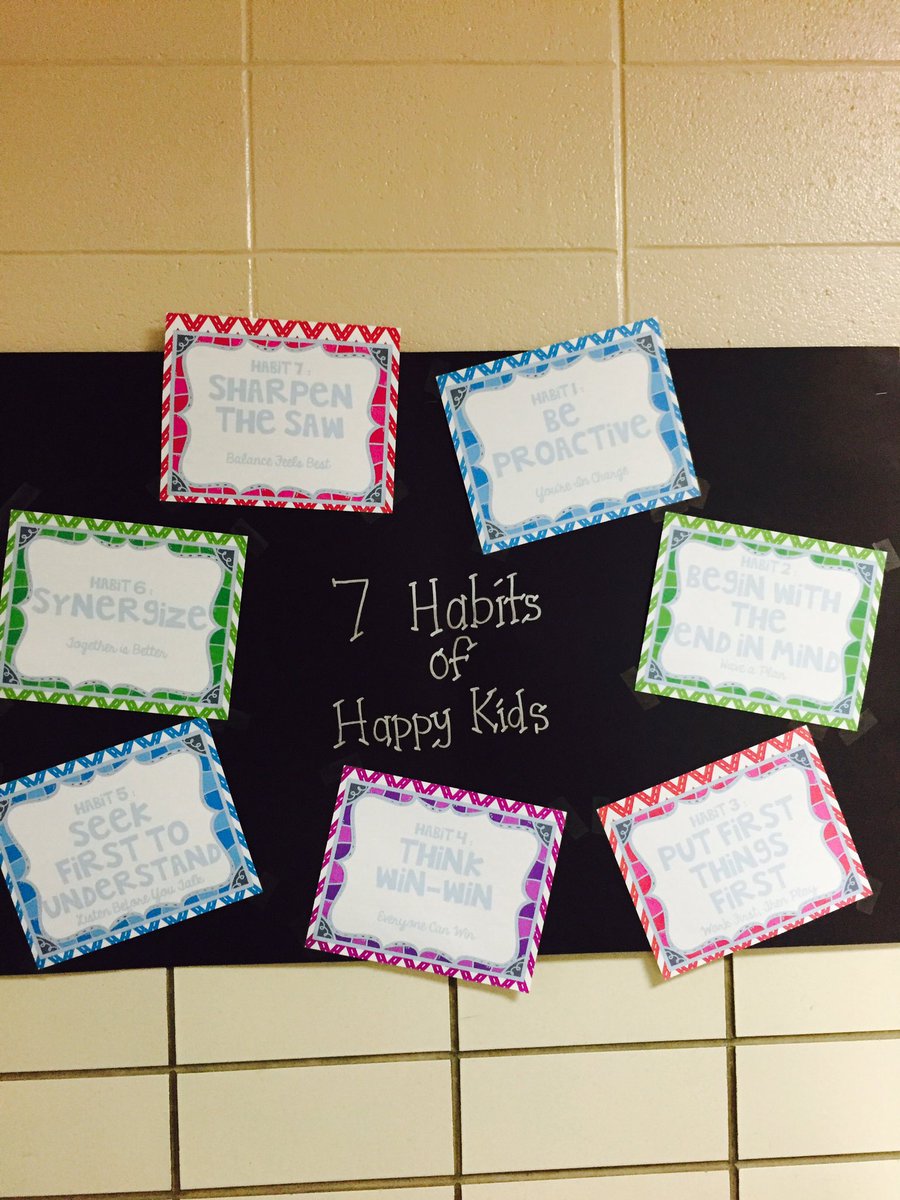 7 Habits
of
Happy Kids
HABIT 1:
BE
PROACTIVE
You're In Charge
HABIT 2:
BEGIN WITH
THE
END IN MIND
Have a Plan
HABIT 3:
PUT FIRST
THINGS
FIRST
Work First, Then Play
HABIT 4:
THINK
WIN-WIN
Everyone Can Win
HABIT 5:
SEEK
FIRST TO
UNDERSTAND
Listen Before You Talk
HABIT 6:
SYNERGIZE
Together is Better
HABIT 7:
SHARPEN
THE SAW
Balance Feels Best